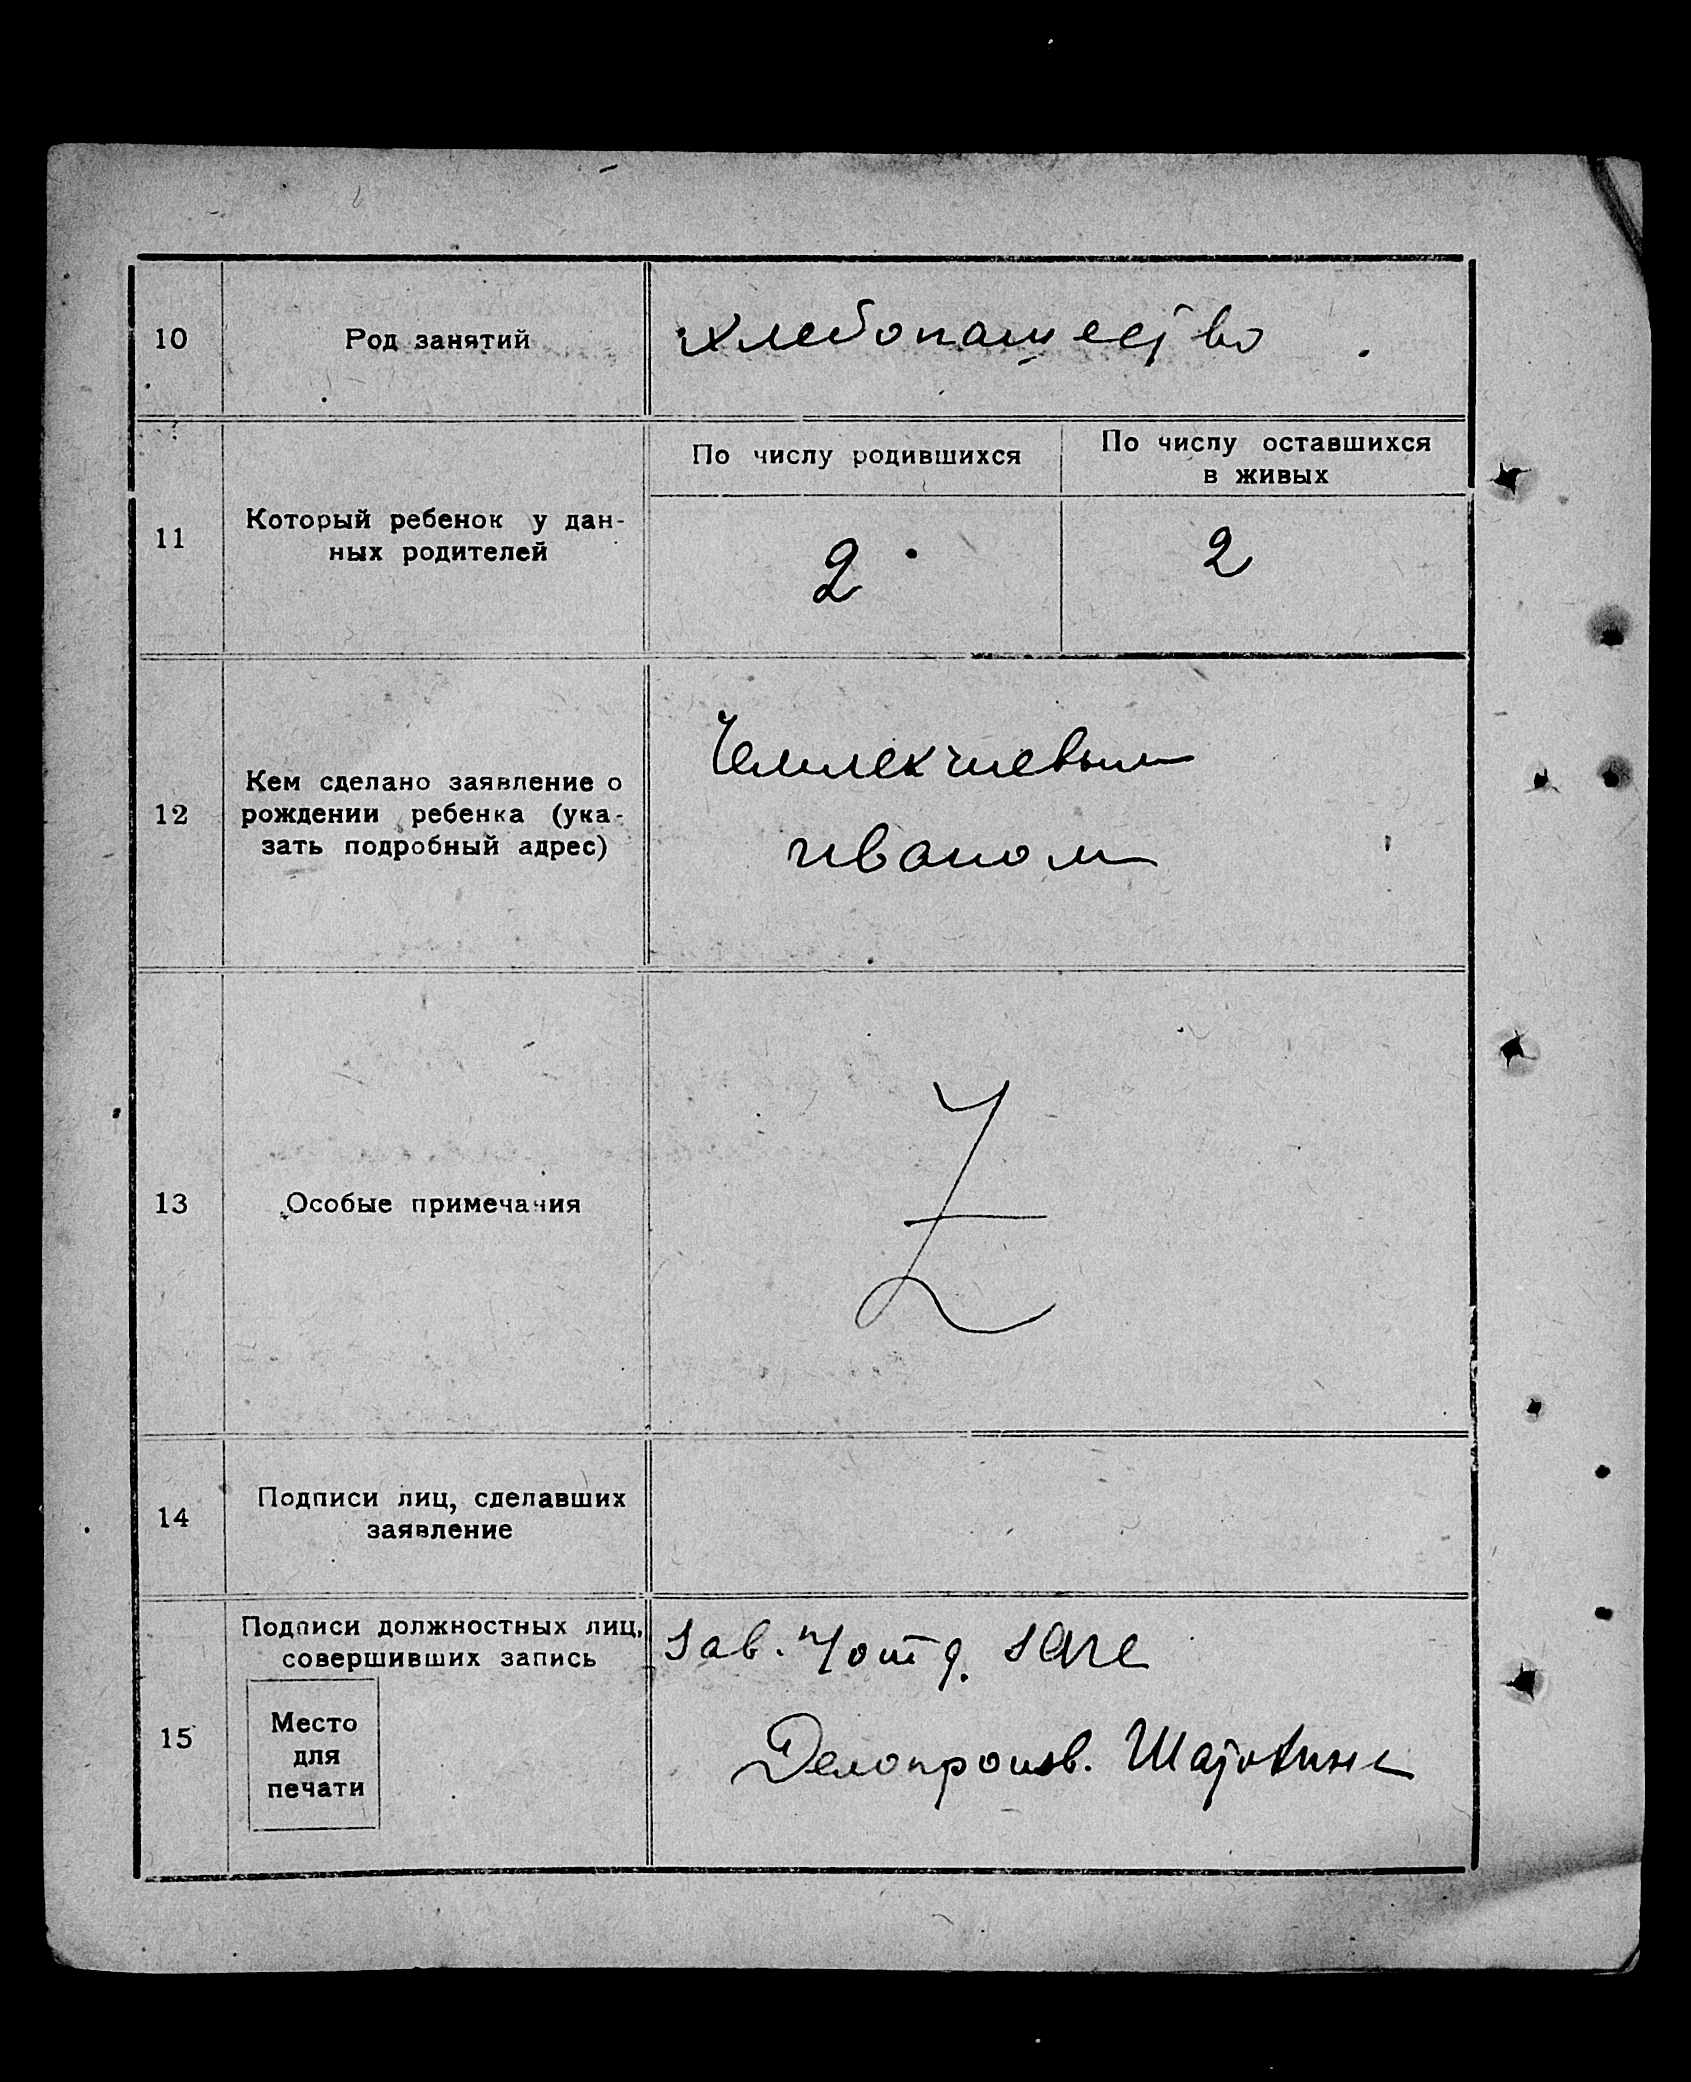 10
Род занятий
хлебопашество
11
Который ребенок у дан-
ных родителей
По числу родившихся
По числу оставшихся
в живых
2
2
12
Кем сделано заявление о
рождении ребенка (ука-
зать подробный адрес)
Челмекчиевым
иваном
13
Особые примечания
Z
14
Подписи лиц, сделавших
заявление
15
Подписи должностных лиц,
совершивших запись
Место
для
печати
Зав.
Делопроизв.